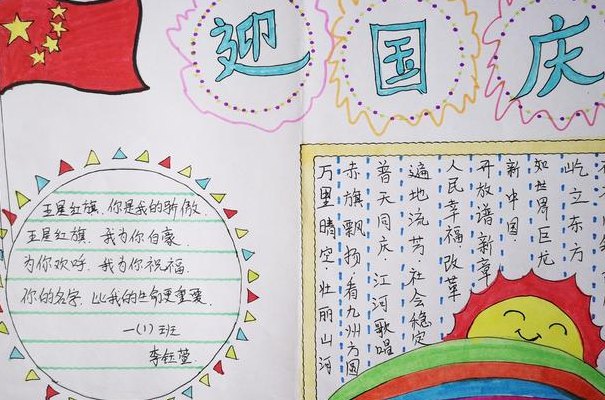 迎国庆
五星红旗,你是我的骄傲.
五星红旗,我为你自豪
为你欢呼,我为你祝福.
你的名字,比我的生命更重要.
一(1)班
李钰
屹立东方
如世界巨龙
新中国
开放谱新章
人民幸福改革
遍地流芳社会稳定
普天同庆 江河歌唱
赤旗飘扬·看九州方圆
万里晴空·壮丽山河